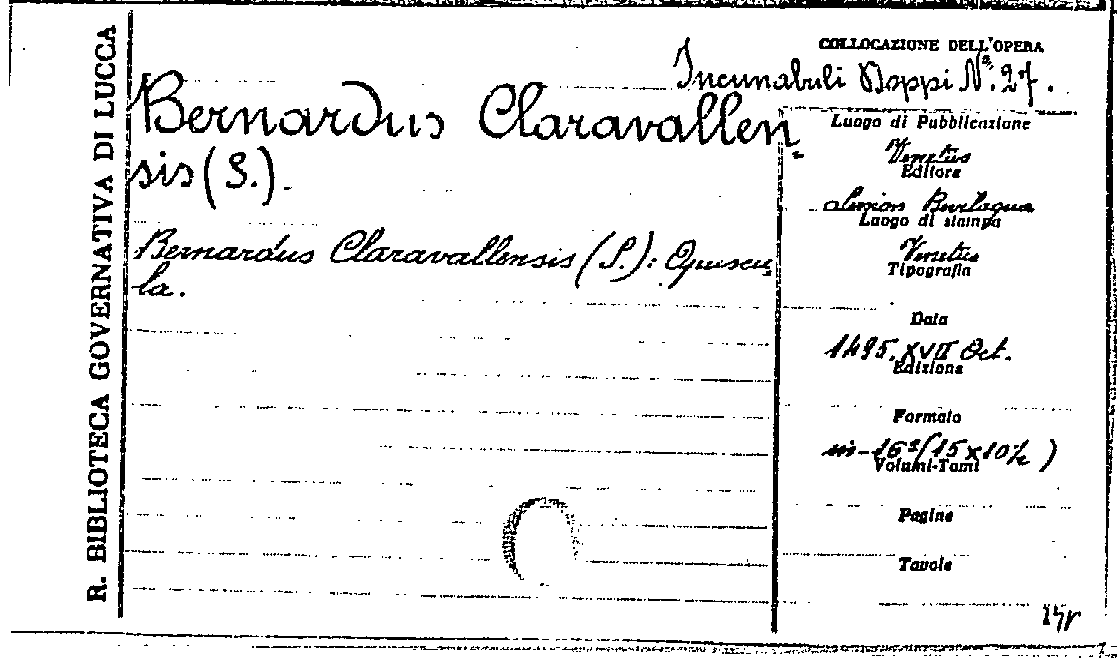 R. BIBLIOTECA GOVERNATIVA DI LUCCA
COLLOCAZIONE DELL'OPERA
Incunabuli Doppi Nº. 27.
Bernardus Claravallen-
sis (S.).
Bernardus Claravallensis (S.): Opuscu-
la.
Luogo di Pubblicazione
Venetus
Editore
Simon Bevilaqua
Luogo di stampa
Venetus
Tipografia
Data
1495. XVII Oct.
Edizione
Formato
in-16º (15 x 10½)
Volumi-Tomi
Pagine
Tavole